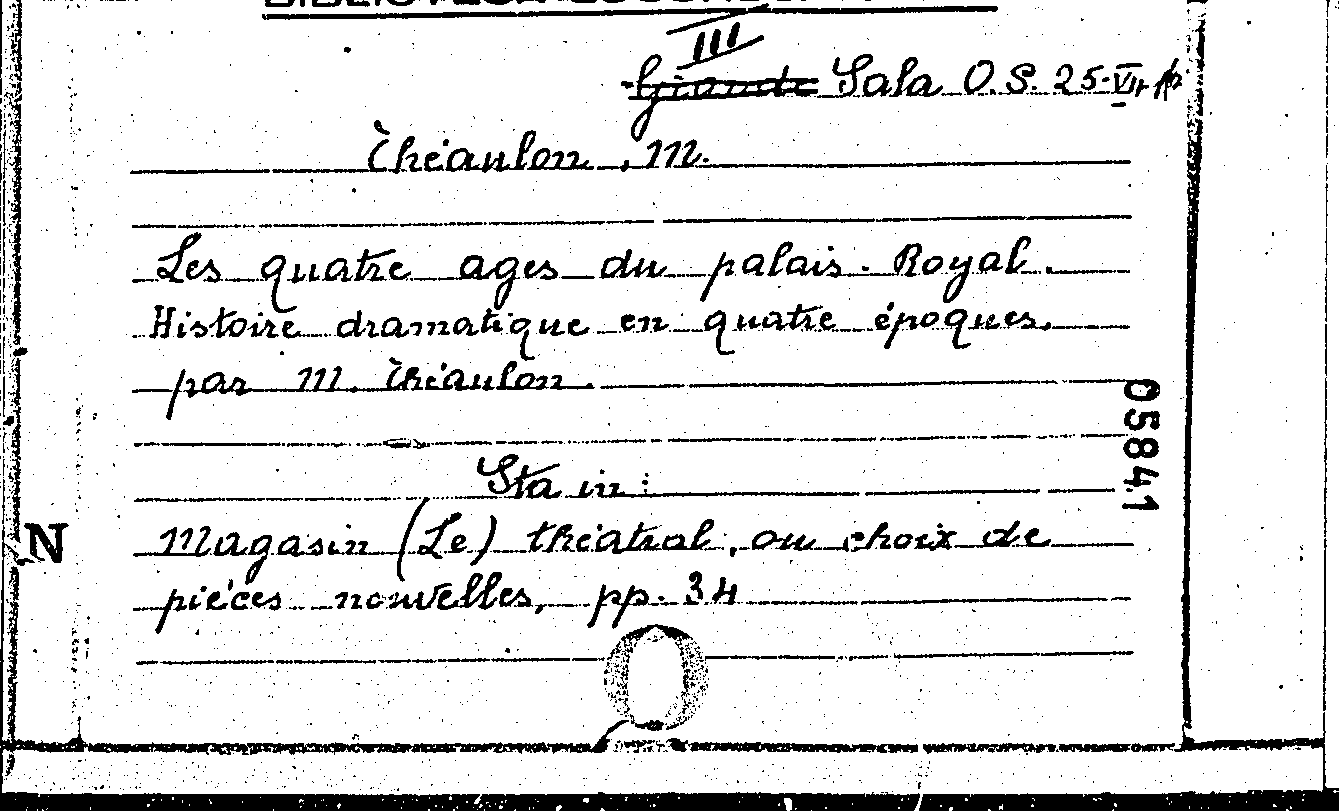 III
Grande Sala O.S. 25-VII
Théaulon, M.
Les quatre ages du palais-Royal.
Histoire dramatique en quatre époques,
par M. Théaulon.
Sta in:
Magasin (Le) théatral, ou choix de
pièces nouvelles, pp. 34
05841
N